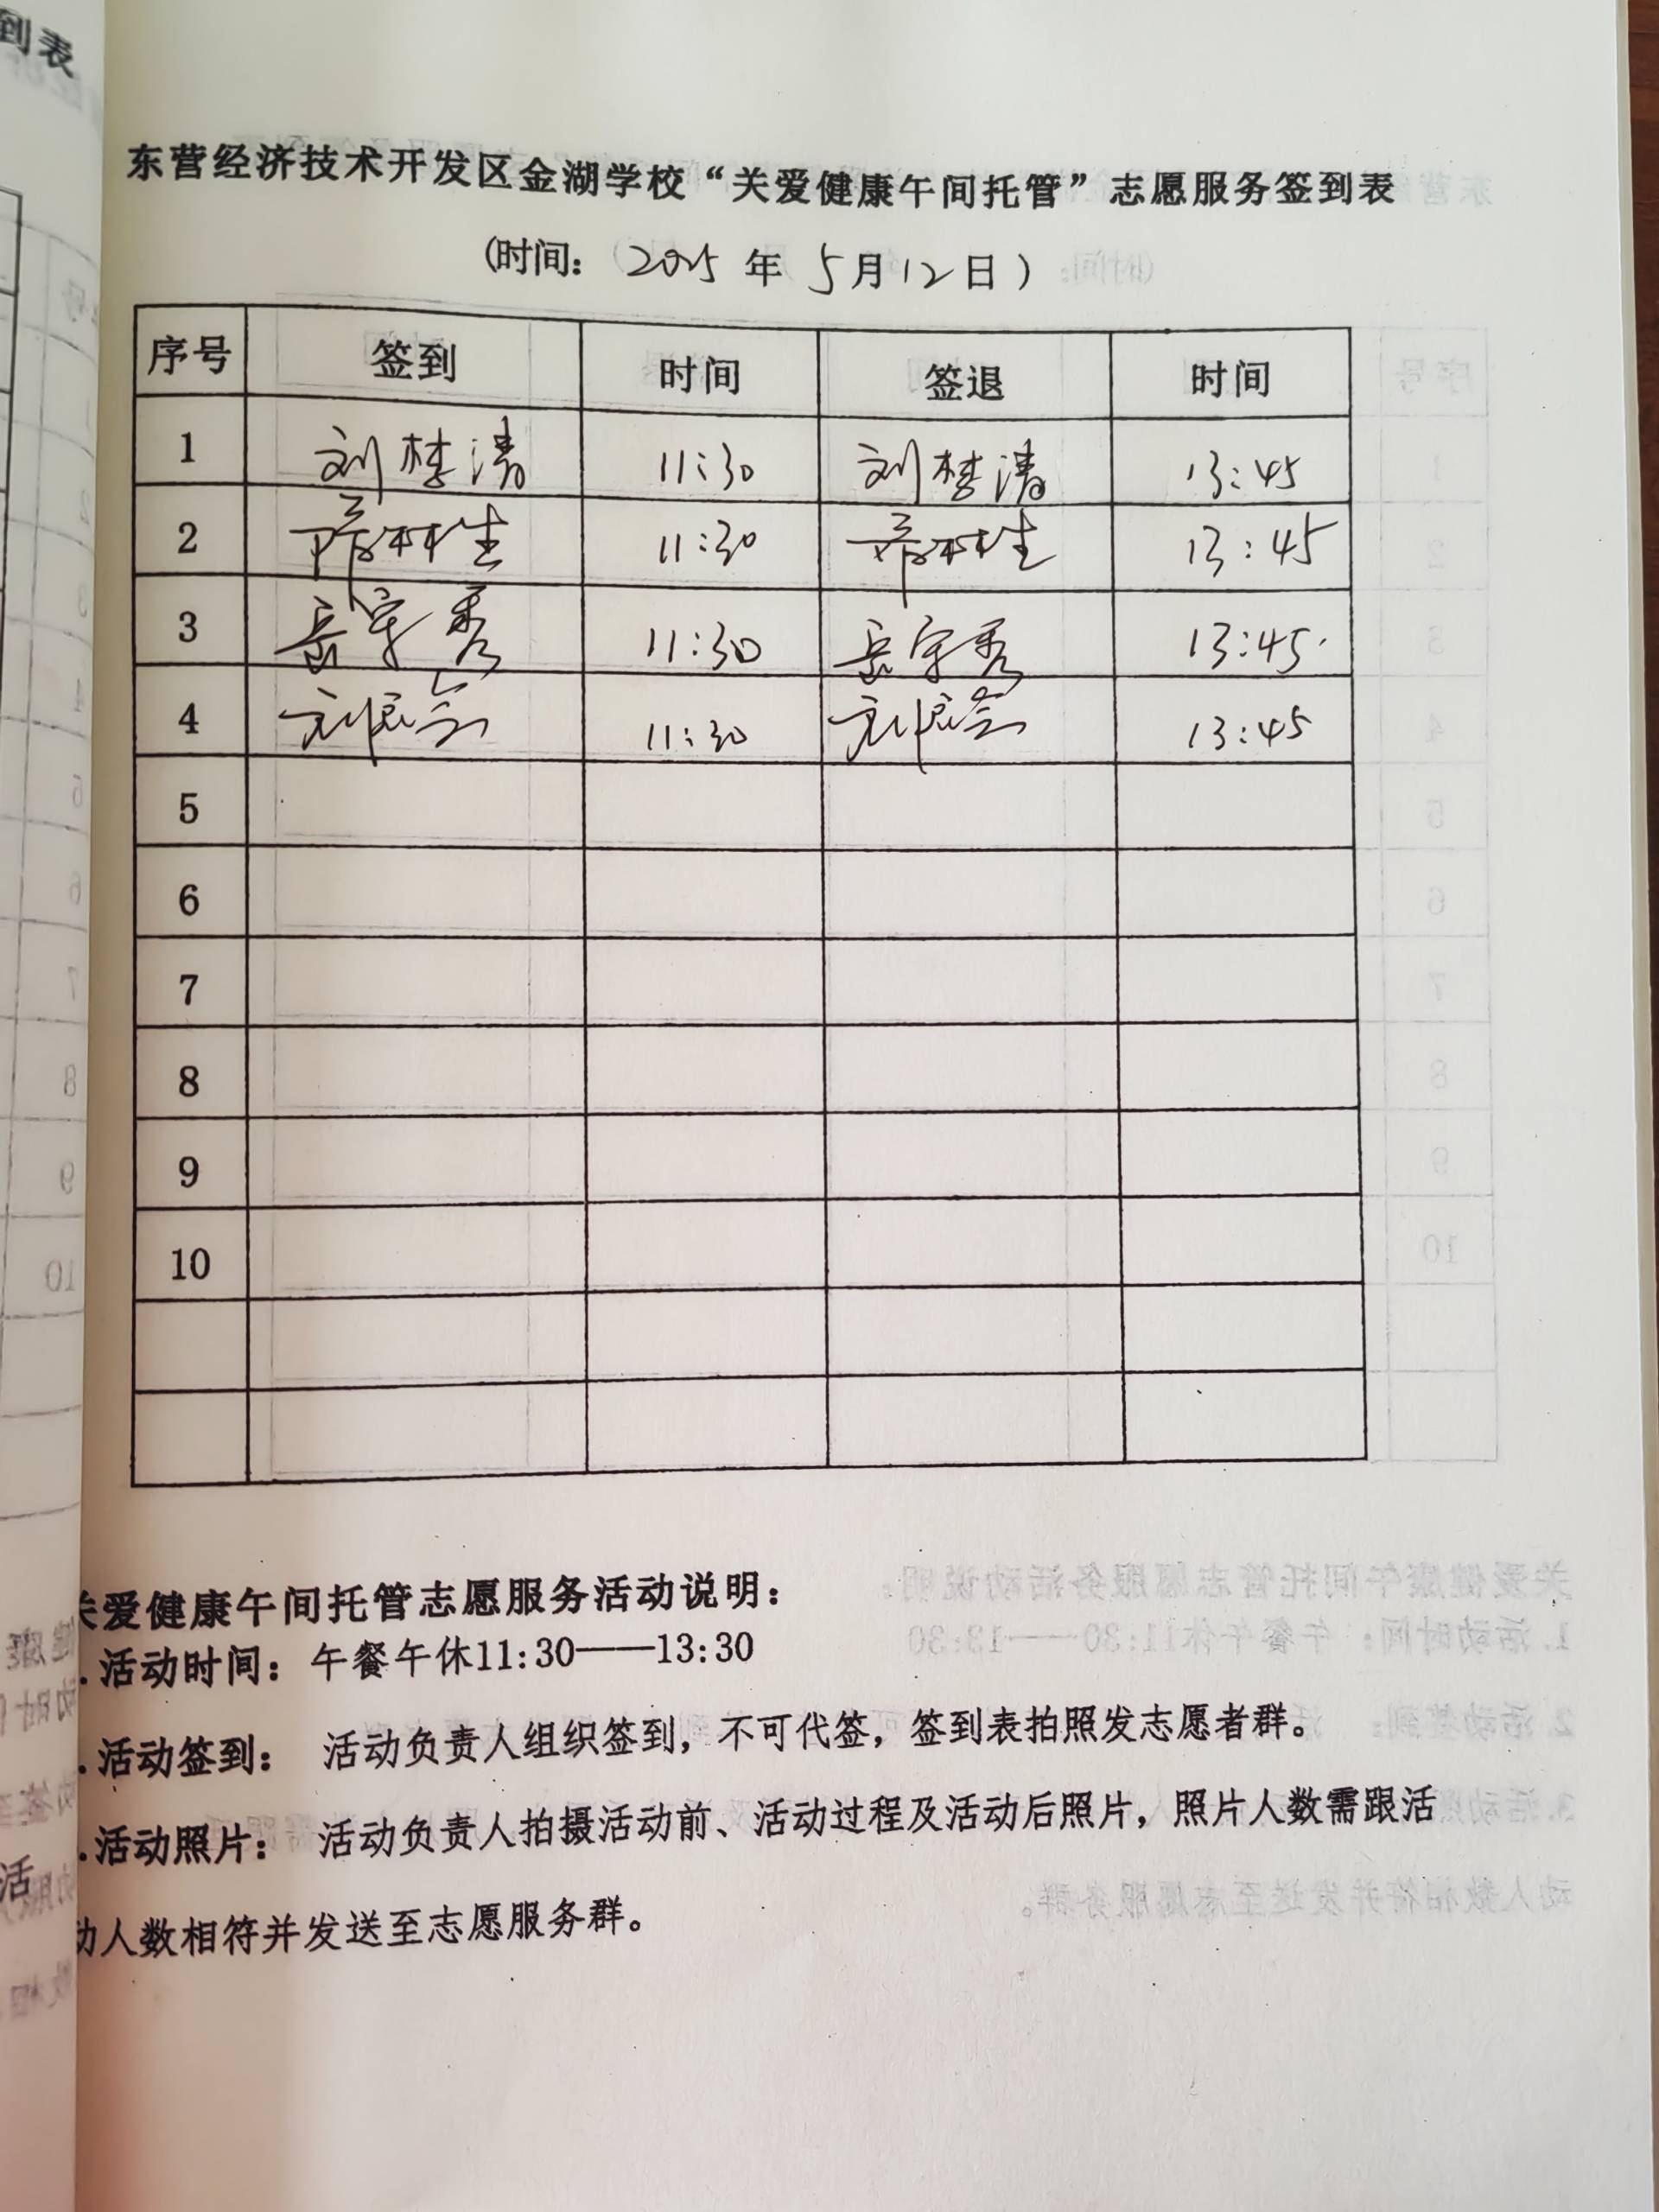 到表
东营经济技术开发区金湖学校“关爱健康午间托管”志愿服务签到表
(时间: 2025 年 5月12日)
序号 签到 时间 签退 时间
1 刘梦清 11:30 刘梦清 13:45
2 11:30 13:45
3 岳宗秀 11:30 岳宗秀 13:45
4 11:30 13:45
5
6
7
8
9
10
关爱健康午间托管志愿服务活动说明:
.活动时间: 午餐午休11:30——13:30
.活动签到: 活动负责人组织签到, 不可代签, 签到表拍照发志愿者群。
.活动照片: 活动负责人拍摄活动前、活动过程及活动后照片, 照片人数需跟活
动人数相符并发送至志愿服务群。